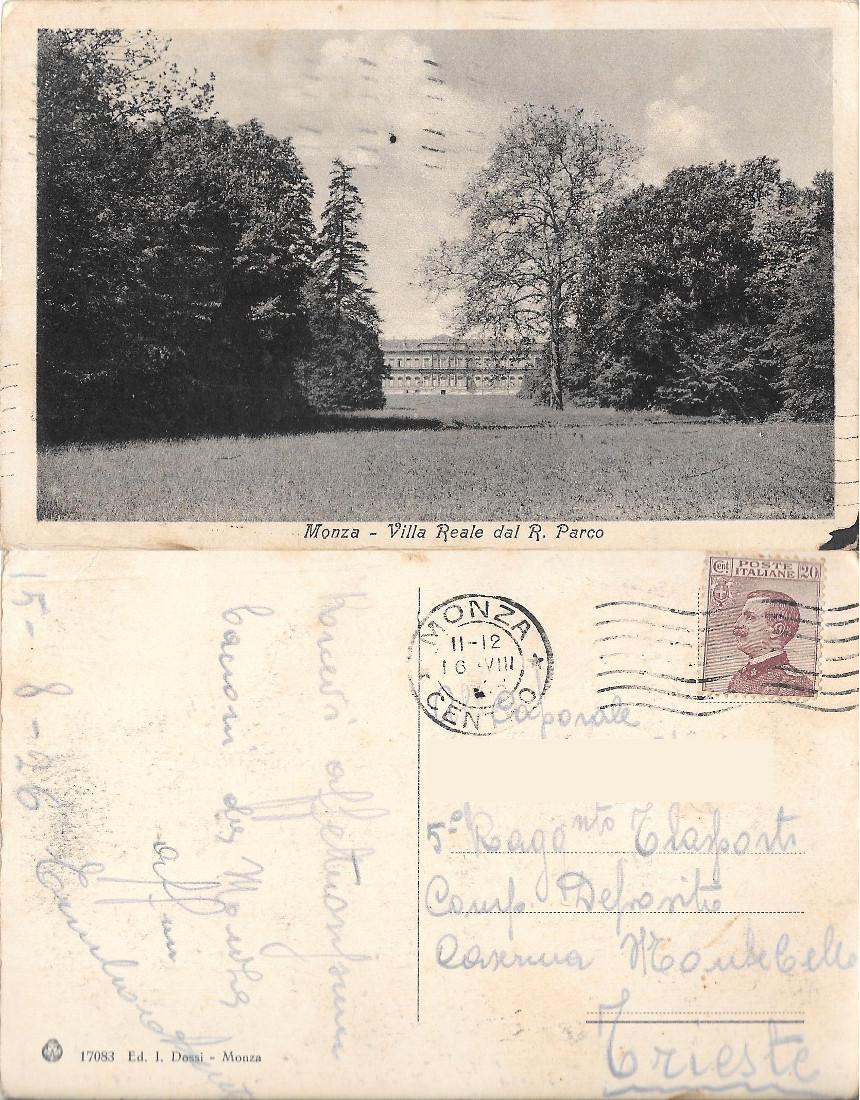 Monza - Villa Reale dal R. Parco
15-8-26
affettuosissimi
Bacioni da Monza
MONZA
11-12
16 VIII
CENTRO
Cent. POSTE ITALIANE 20
Caporale
5º Ragg.nto
Comp Deposito
Caserma Montebello
Trieste
17083 Ed. I. Dossi - Monza